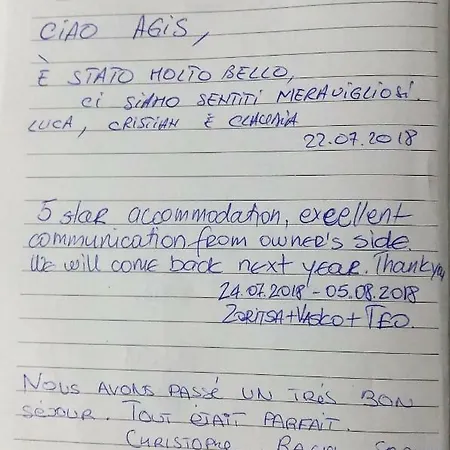 CIAO AGIS,
È STATO MOLTO BELLO,
CI SIAMO SENTITI MERAVIGLIOSI.
LUCA, CRISTIAN E CLAUDIA
22.07.2018
5 star accommodation, excellent
communication from owner's side.
We will come back next year. Thank you
24.07.2018 - 05.08.2018
ZORITSA + VASKO + TEO.
NOUS AVONS PASSÉ UN TRÉS BON
SÉJOUR. TOUT ÉTAIT PARFAIT.
CHRISTOPHE